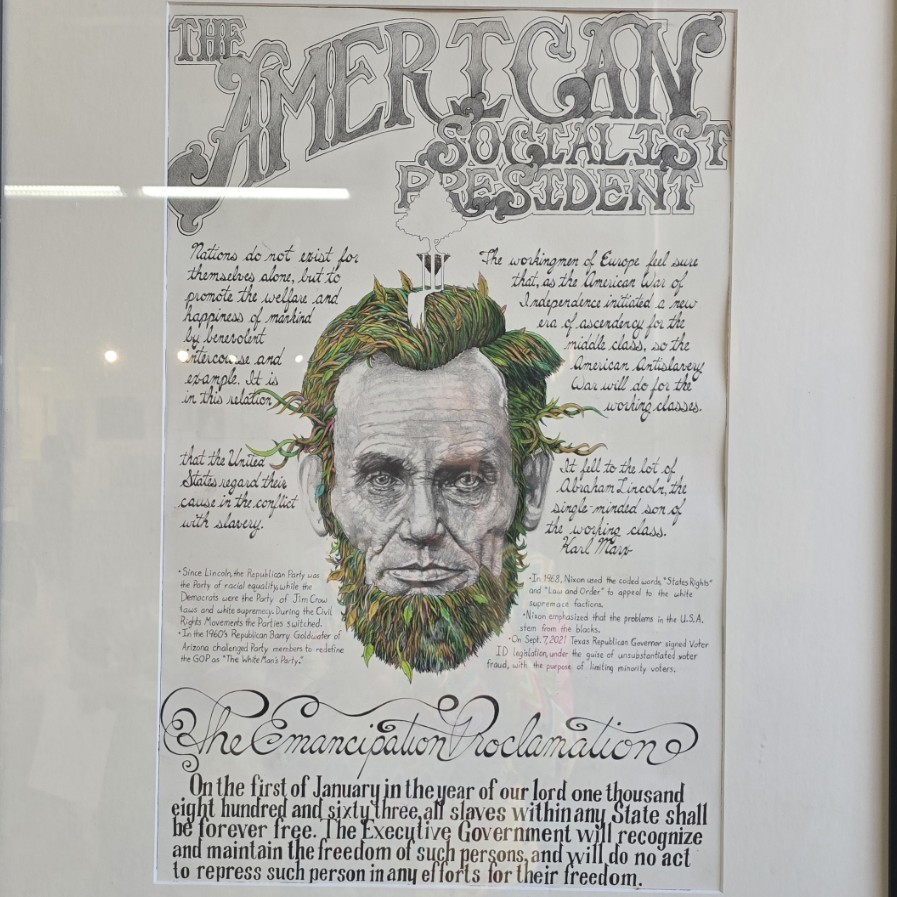 THE
AMERICAN
SOCIALIST
PRESIDENT
Nations do not exist for
themselves alone, but to
promote the welfare and
happiness of mankind
by benevolent
intercourse and
example. It is
in this relation
that the United
States regard their
cause in the conflict
with slavery.
The workingmen of Europe feel sure
that, as the American War of
Independence initiated a new
era of ascendency for the
middle class, so the
American Antislavery
War will do for the
working classes.
It fell to the lot of
Abraham Lincoln, the
single-minded son of
the working class.
Karl Marx
• Since Lincoln, the Republican Party was
the Party of racial equality, while the
Democrats were the Party of Jim Crow
laws and white supremacy. During the Civil
Rights Movements the Parties switched.
• In the 1960's Republican Barry Goldwater of
Arizona challenged Party members to redefine
the GOP as "The White Man's Party."
• In 1968, Nixon used the coded words, "States Rights"
and "Law and Order" to appeal to the white
supremacy factions.
• Nixon emphasized that the problems in the U.S.A.
stem from the blacks.
• On Sept. 7, 2021 Texas Republican Governor signed Voter
ID legislation, under the guise of unsubstantiated voter
fraud, with the purpose of limiting minority voters.
The Emancipation Proclamation
On the first of January in the year of our lord one thousand
eight hundred and sixty three, all slaves within any State shall
be forever free. The Executive Government will recognize
and maintain the freedom of such persons, and will do no act
to repress such person in any efforts for their freedom.